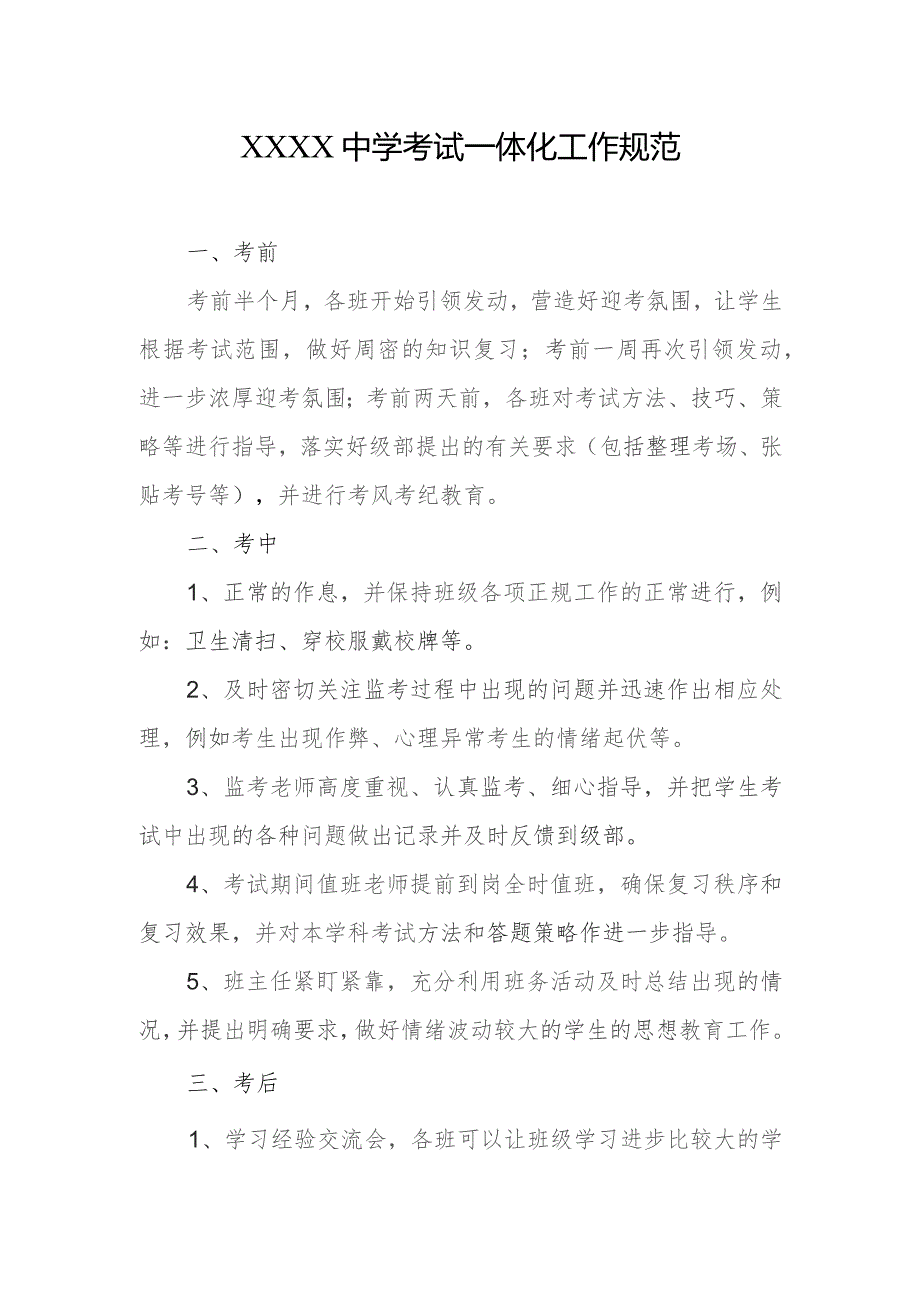 XXXX 中学考试一体化工作规范
一、考前
考前半个月，各班开始引领发动，营造好迎考氛围，让学生
根据考试范围，做好周密的知识复习；考前一周再次引领发动，
进一步浓厚迎考氛围；考前两天前，各班对考试方法、技巧、策
略等进行指导，落实好级部提出的有关要求（包括整理考场、张
贴考号等），并进行考风考纪教育。
二、考中
1、正常的作息，并保持班级各项正规工作的正常进行，例
如：卫生清扫、穿校服戴校牌等。
2、及时密切关注监考过程中出现的问题并迅速作出相应处
理，例如考生出现作弊、心理异常考生的情绪起伏等。
3、监考老师高度重视、认真监考、细心指导，并把学生考
试中出现的各种问题做出记录并及时反馈到级部。
4、考试期间值班老师提前到岗全时值班，确保复习秩序和
复习效果，并对本学科考试方法和答题策略作进一步指导。
5、班主任紧盯紧靠，充分利用班务活动及时总结出现的情
况，并提出明确要求，做好情绪波动较大的学生的思想教育工作。
三、考后
1、学习经验交流会，各班可以让班级学习进步比较大的学